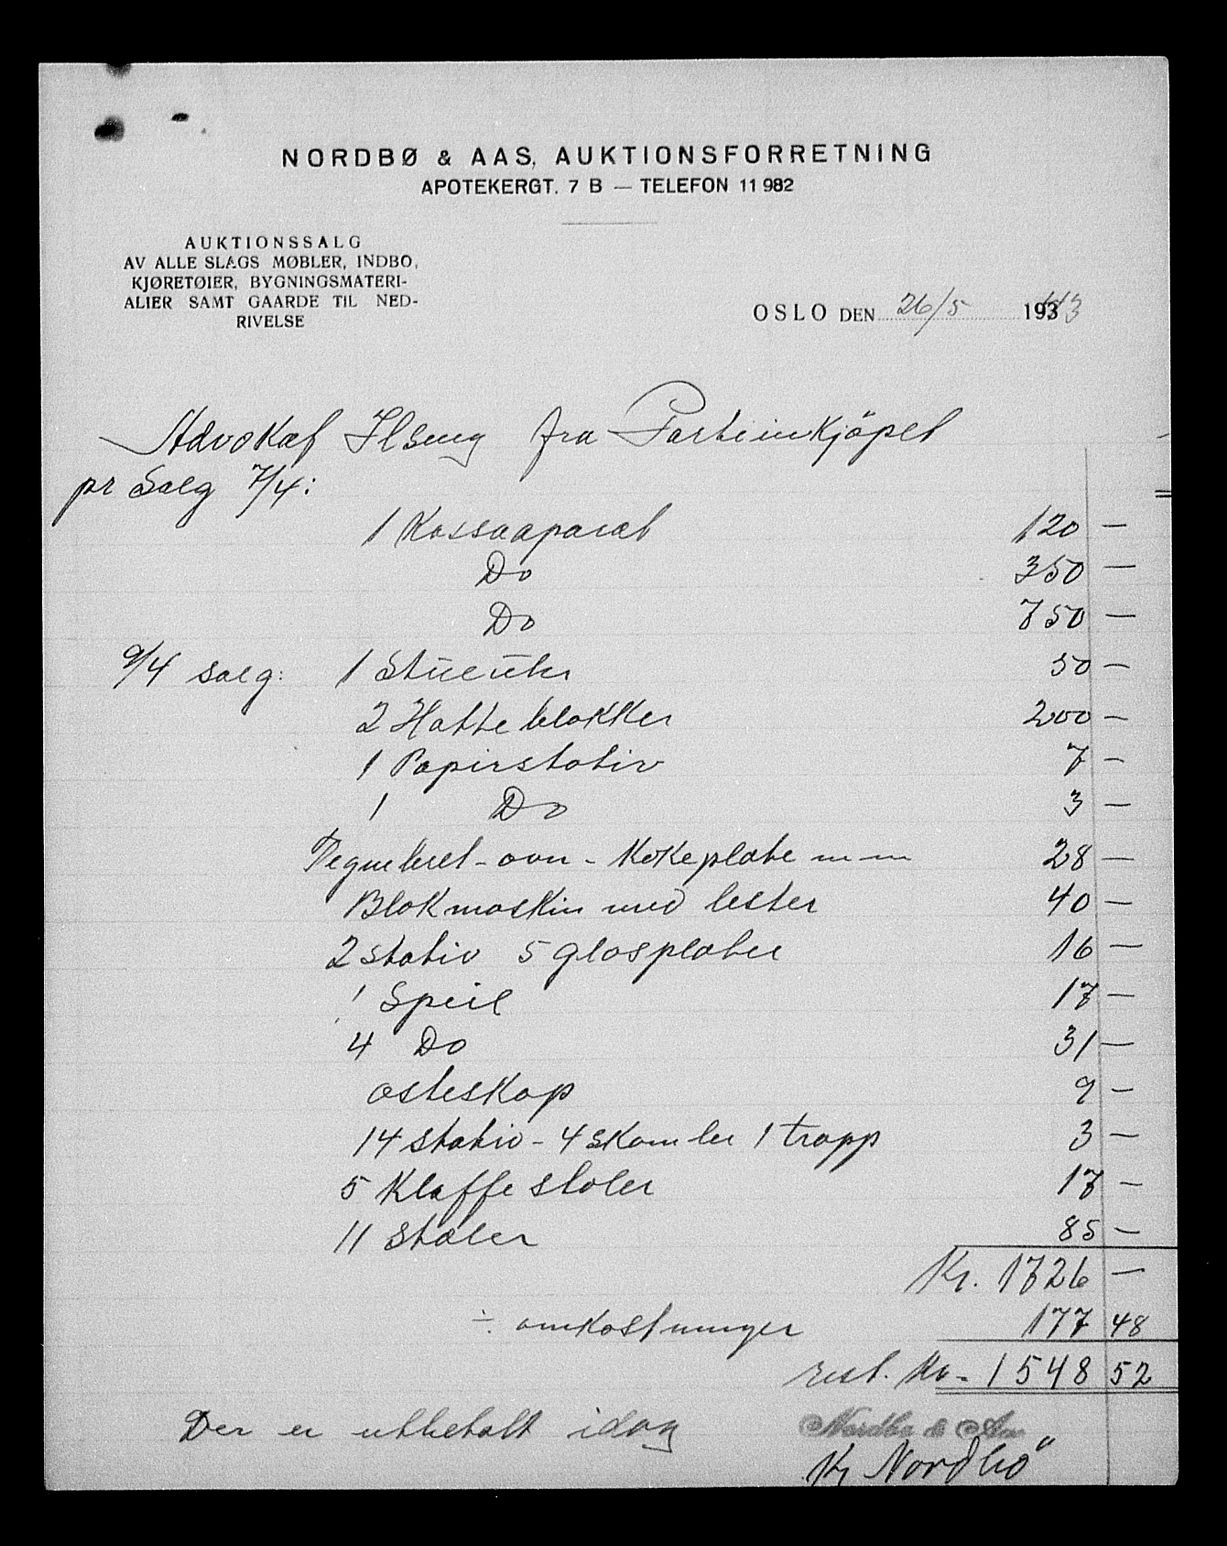 NORDBØ & AAS, AUKTIONSFORRETNING
APOTEKERGT. 7 B — TELEFON 11 982
AUKTIONSSALG
AV ALLE SLAGS MØBLER, INDBO,
KJØRETØIER, BYGNINGSMATERI-
ALIER SAMT GAARDE TIL NED-
RIVELSE
OSLO DEN 26/5 1943
Advokat Ilseng fra Partiinkjöpet
pr Salg 7/4:
1 Kassaaparat 120 —
Do 350 —
Do 750 —
9/4 salg: 1 Stueuhr 50 —
2 Hatteblokker 200 —
1 Papirstativ 7 —
1 Do 3 —
ovn - Kokeplate m m 28 —
Blokmaskin med lester 40 —
2 stativ 5 glasplater 16 —
1 Speil 17 —
4 Do 31 —
osteskap 9 —
14 stativ - 4 skamler 1 trapp 3 —
5 Klaffestoler 17 —
11 Stoler 85 —
Kr. 1726 —
÷ omkostninger 177 48
rest. Kr - 1548 52
Der er utbetalt idag
Nordbø & Aas
Kr Nordbö